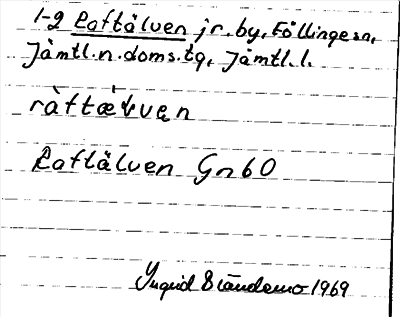 1-2 Raftälven jr. by, Föllinge sn,
Jämtl. n. doms. tg, Jämtl. l.
Raftälven Gn 60
Ingrid 1969